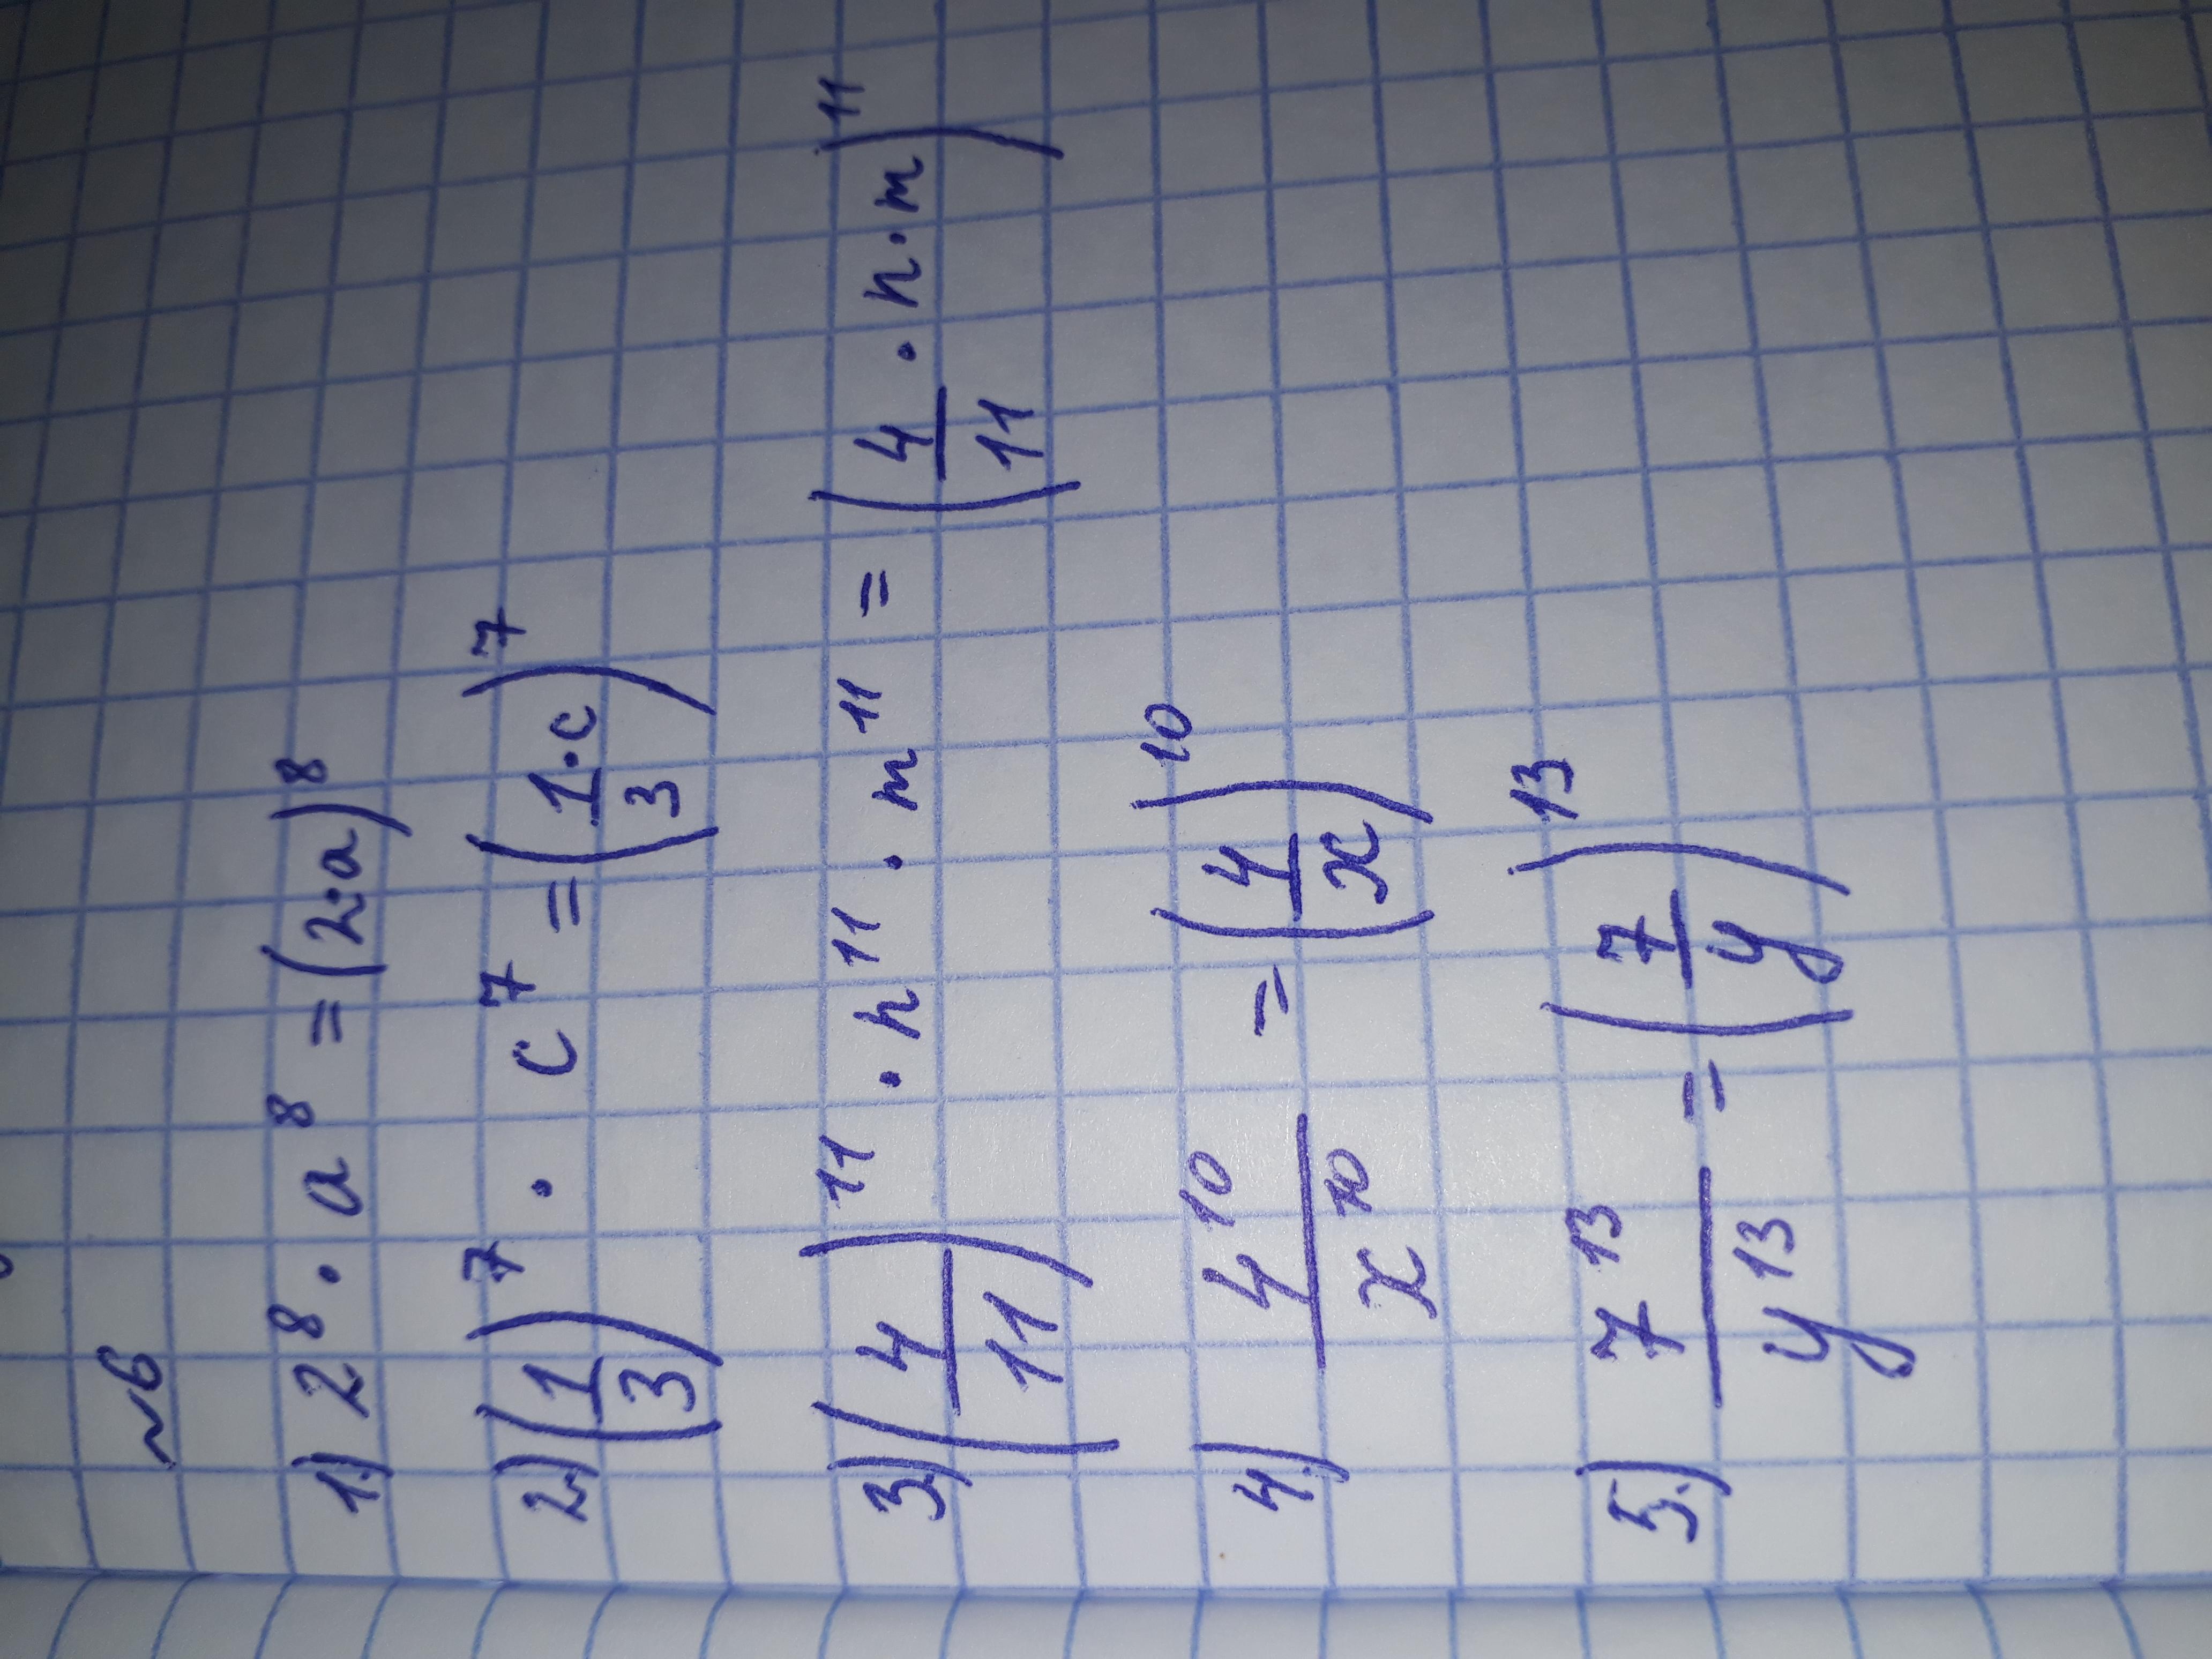 №6
1) 2⁸ · a⁸ = (2·a)⁸
2) (1/3)⁷ · c⁷ = (1/3 · c)⁷
3) (4/11)¹¹ · n¹¹ · m¹¹ = (4/11 · n · m)¹¹
4) 4¹⁰/x¹⁰ = (4/x)¹⁰
5) 7¹³/y¹³ = (7/y)¹³